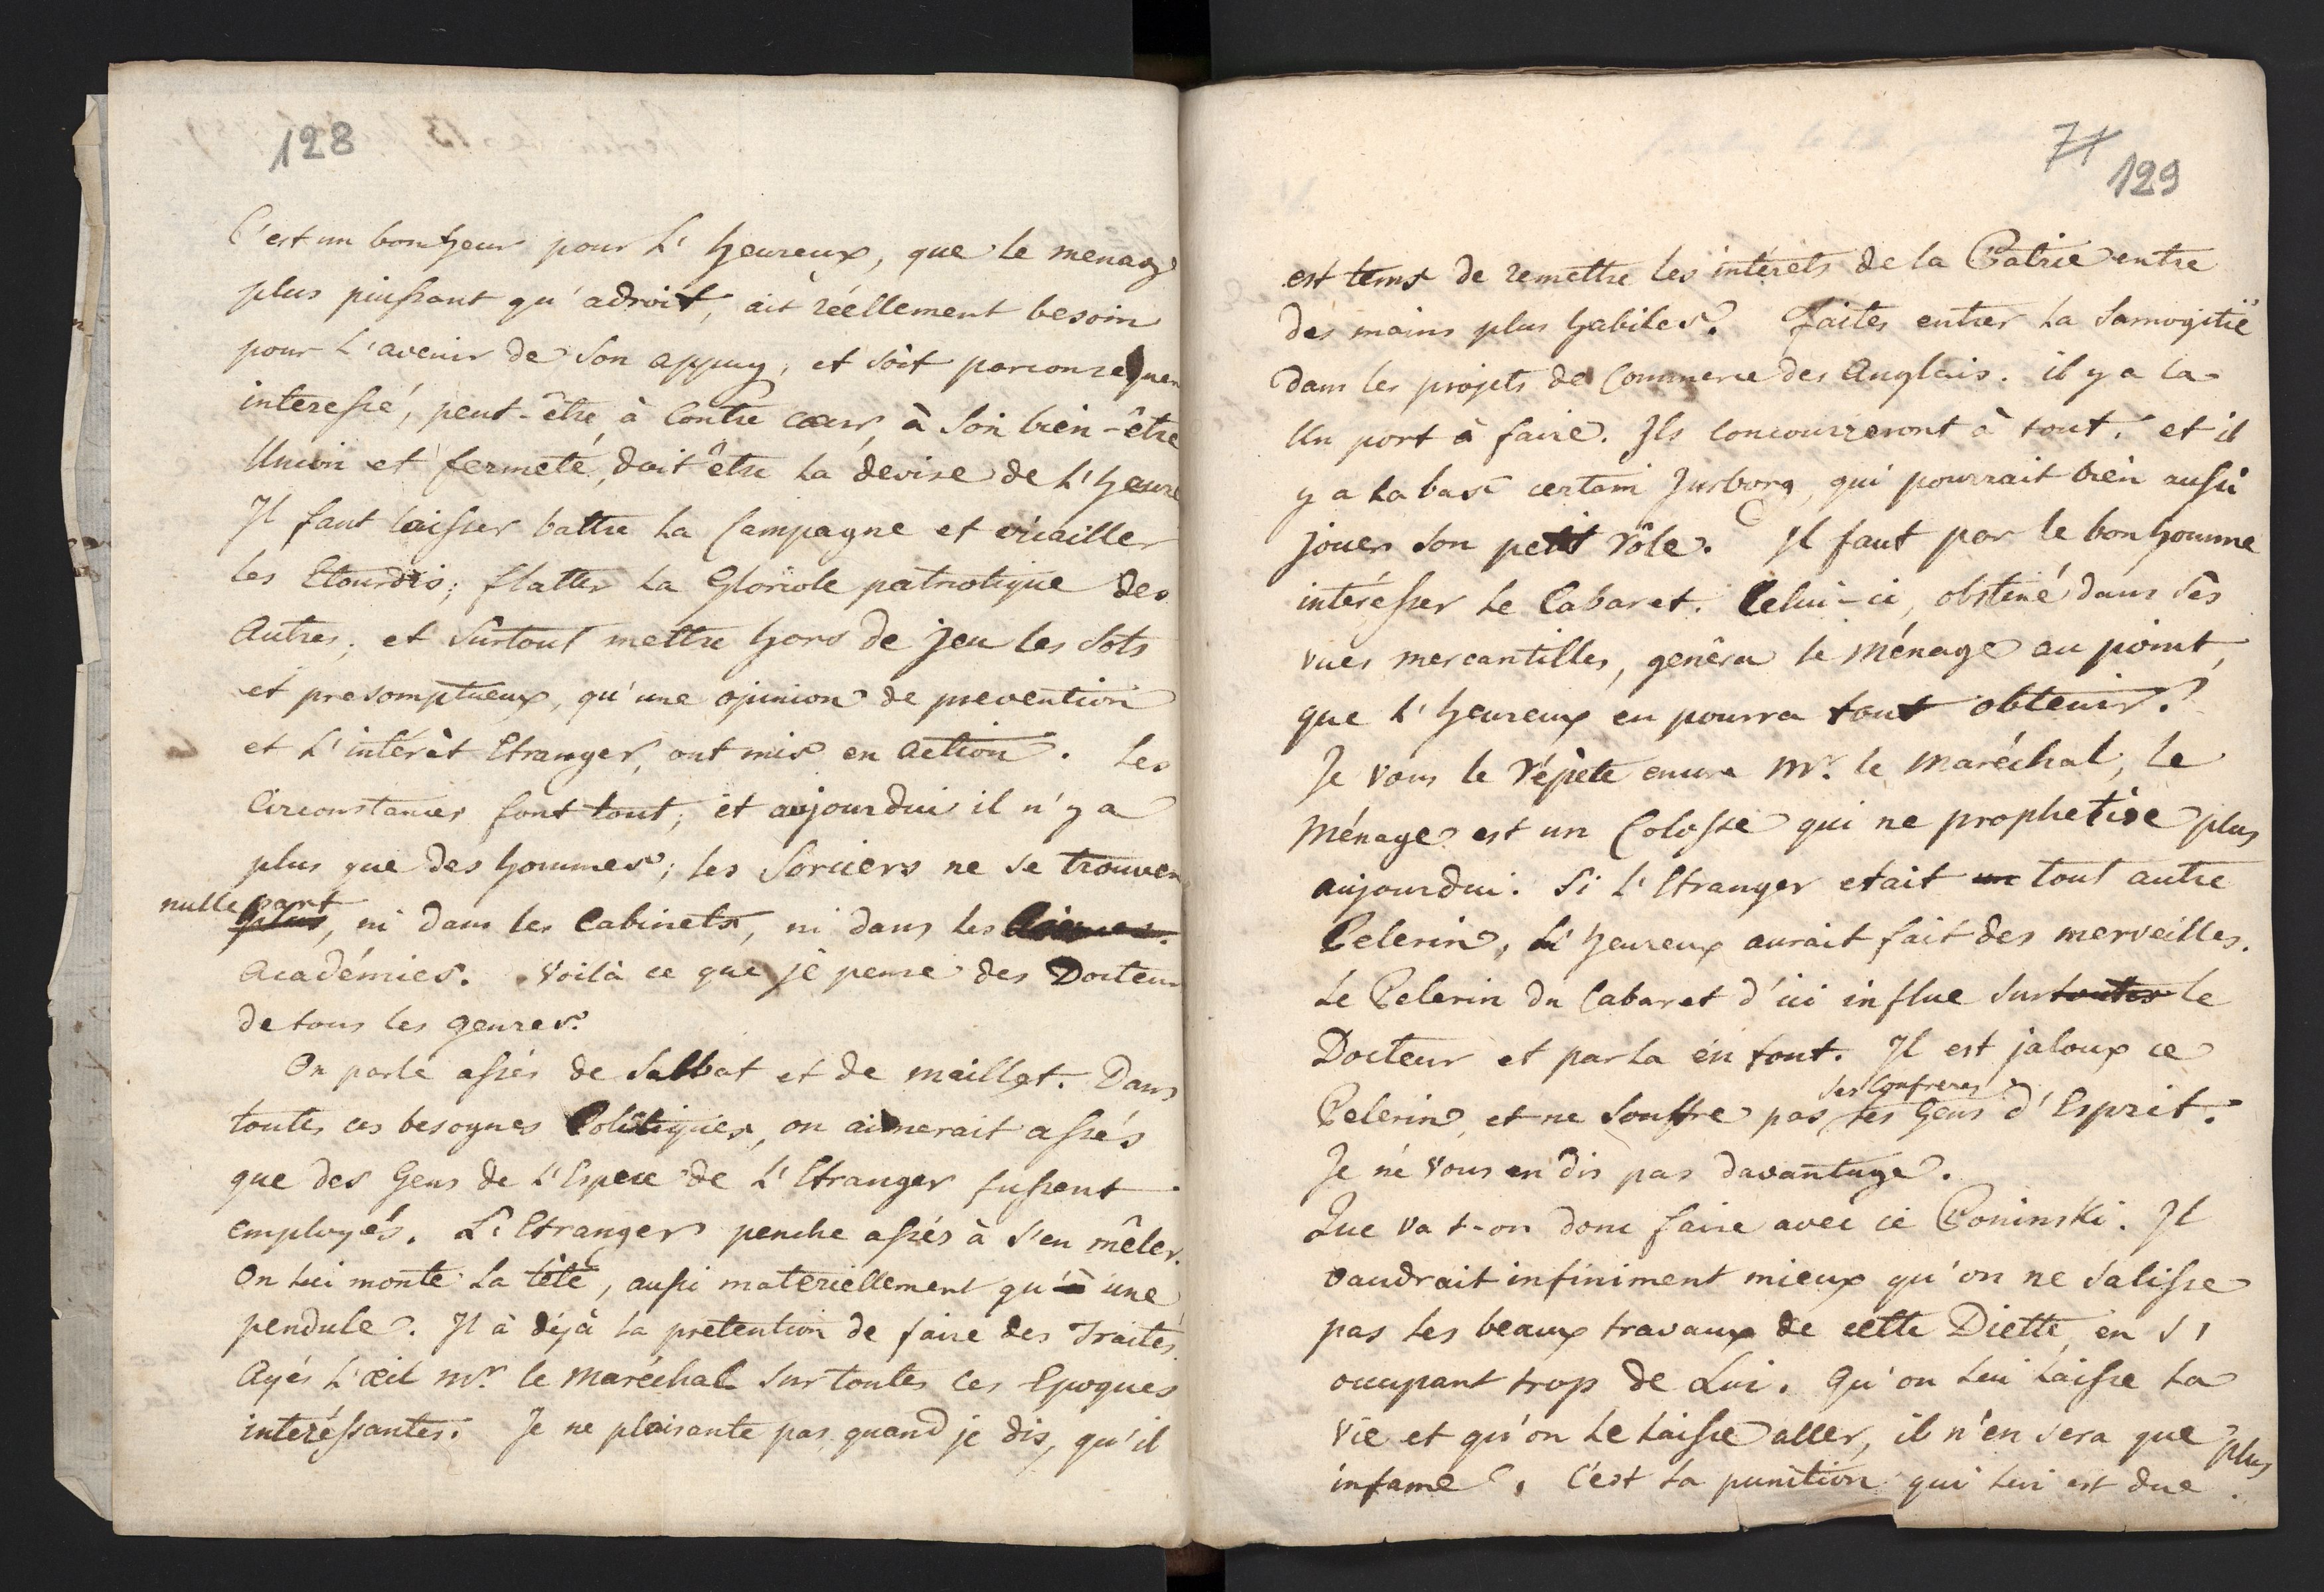 128
C'est un bonheur pour L' heureux, que le menage
plus puissant qu'adroit, ait réellement besoin
pour L'avenir de son appuy, et soit parconsequen
interessé, peut-être à Contre coeur, à Son bien-être
Union et fermeté, doit être La devise de L'heure
Il faut laisser battre La Campagne et criailler
les Etourdis; flatter La Gloriole patriotique des
Autres; et Surtout mettre hors de jeu les Sots
et presomptueux, qu'une opinion de prevention
et L'intérêt Etranger, ont mis en action. Les
Circonstances font tout; et aujourdui il n'y a
plus que des hommes; les Sorciers ne se trouven
nulle part
plus, ni dans les Cabinets, ni dans les
Académies. Voilà ce que je pense des Docteur
de tous les genres.
On parle assés de Sabbat et de maillet. Dans
toutes ces besognes Politiques, on aimerait assés
que des Gens de L'Espece de L'Etranger fussent
employés. L'Etranger penche assés à s'en mêler.
On Lui monte La tête, aussi materiellement qu'à une
pendule. Il à déjà La pretention de faire des Traités.
Ayés L'œil Mr. le Maréchal Sur toutes ces Epoques
interéssantes. Je ne plaisante pas quand je dis, qu'il
71
129
est tems de remettre les intérêts de la Patrie entre
des mains plus habiles. Faites entrer La Samogitië
dans les projets de Commerce des Anglais. il y a la
Un port à faire. Ils concourreront à tout. et il
y a La bas certain Jurborg, qui pourrait bien aussi
jouer son petit rôle. Il faut par le bon homme
intérésser Le Cabaret. Celui-ci, obstiné dans ses
vues mercantilles, genêra le Ménage au point,
que L'heureux en pourra tout obtenir.
Je vous le répete encore Mr. le Maréchal, le
Ménage est un Colosse qui ne prophetise plus
aujourdui. Si L'Etranger etait un tout autre
Pelerin, L'heureux aurait fait des merveilles.
Le Pelerin du Cabaret d'ici influe Sur toutes le
Docteur et par La en tout. Il est jaloux ce
ses Confreres
Pelerin, et ne Souffre pas, les Gens d'Esprit.
Je ne vous en dis pas davantage.
Que va t-on donc faire avec ce Poninski. Il
vaudrait infiniment mieux qu'on ne salisse
pas Les beaux travaux de cette Diette, en s'
occupant trop de Lui. Qu'on Lui Laisse La
vie et qu'on Le Laisse aller, il n'en sera que plus
infame. C'est La punition qui Lui est due.